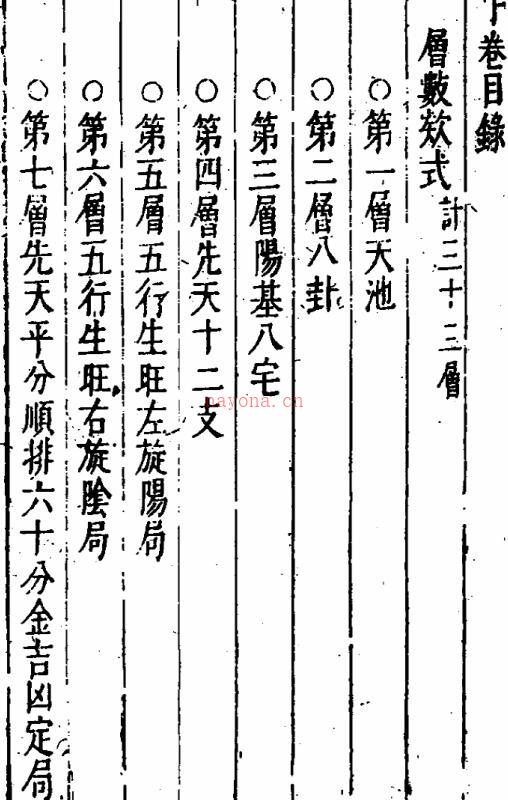 下卷目錄
層數欸式 計三十三層
○第一層天池
○第二層八卦
○第三層陽基八宅
○第四層先天十二支
○第五層五行生旺左旋陽局
○第六層五行生旺右旋陰局
○第七層先天平分順排六十分金吉凶定局
nayona.cn